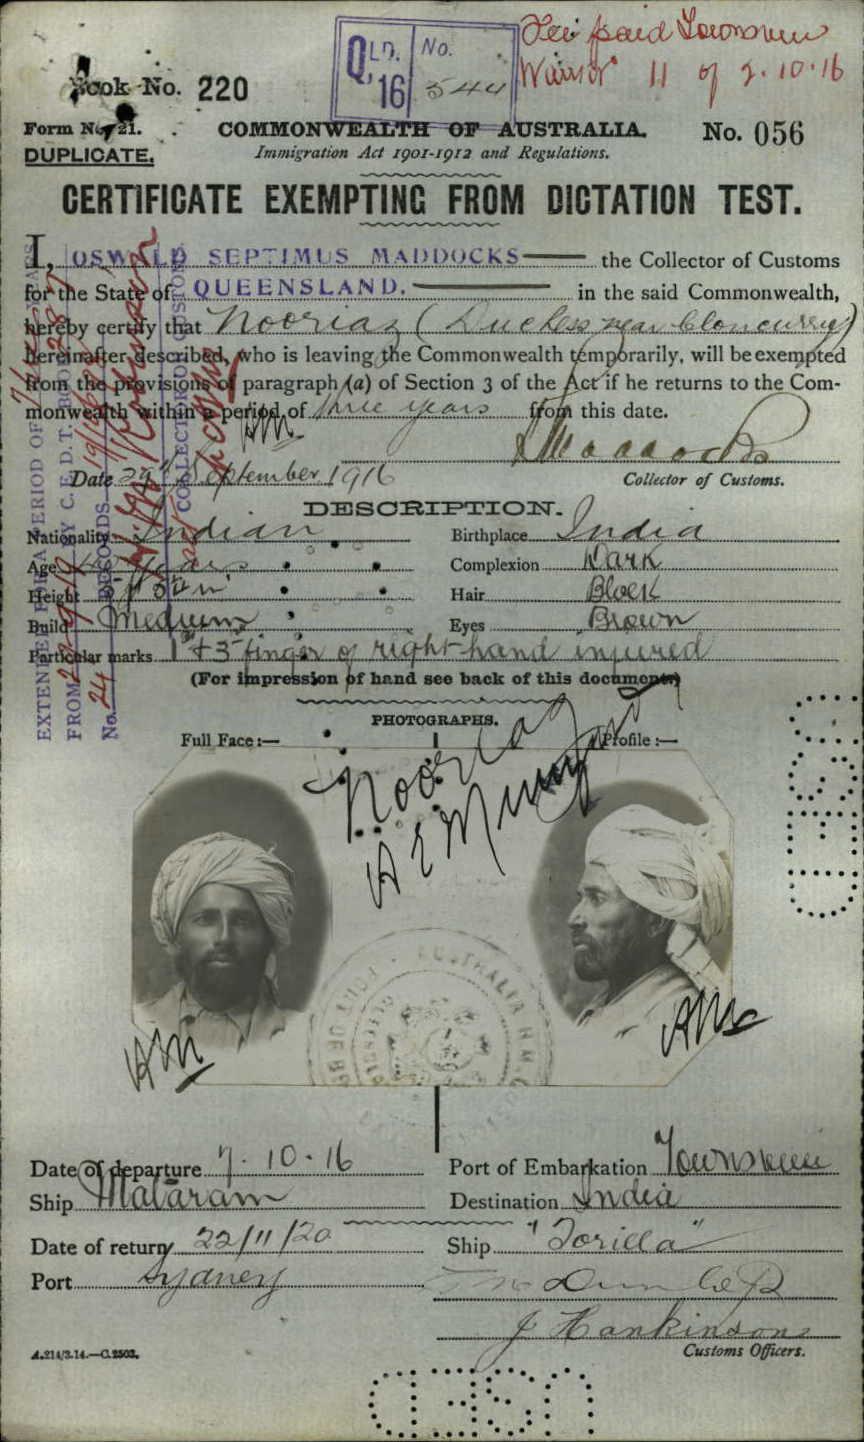 QLD. No.
16 544
Fee paid Townsville
11 of 2.10.16
Book No. 220
Form No. 21.
COMMONWEALTH OF AUSTRALIA.
No. 056
DUPLICATE.
Immigration Act 1901-1912 and Regulations.
CERTIFICATE EXEMPTING FROM DICTATION TEST.
I, OSWALD SEPTIMUS MADDOCKS the Collector of Customs
for the State of QUEENSLAND. in the said Commonwealth,
hereby certify that Nooriaz (Duchess near Cloncurry)
hereinafter described, who is leaving the Commonwealth temporarily, will be exempted
from the provisions of paragraph (a) of Section 3 of the Act if he returns to the Com-
monwealth within a period of three years from this date.
Maddocks
Date 29th September 1916
Collector of Customs.
EXTENDED FOR A PERIOD OF
FROM BY C.E.D.T. BOOK
No. 24 RECORDS
COLLECTOR OF CUSTOMS
DESCRIPTION.
Nationality Indian Birthplace India
Age 40 years Complexion Dark
Height Hair Black
Build Medium Eyes Brown
Particular marks 1st + 3rd finger of right hand injured
(For impression of hand see back of this document)
PHOTOGRAPHS.
Full Face :— Profile :—
Nooriaz
AUSTRALIA H.M.C.
Date of departure 7.10.16 Port of Embarkation Townsville
Ship Mataram Destination India
Date of return 22/11/20 Ship "Torilla"
Port Sydney
J Hankinson
Customs Officers.
A.214/3.14.—C.2503.
USED
USED